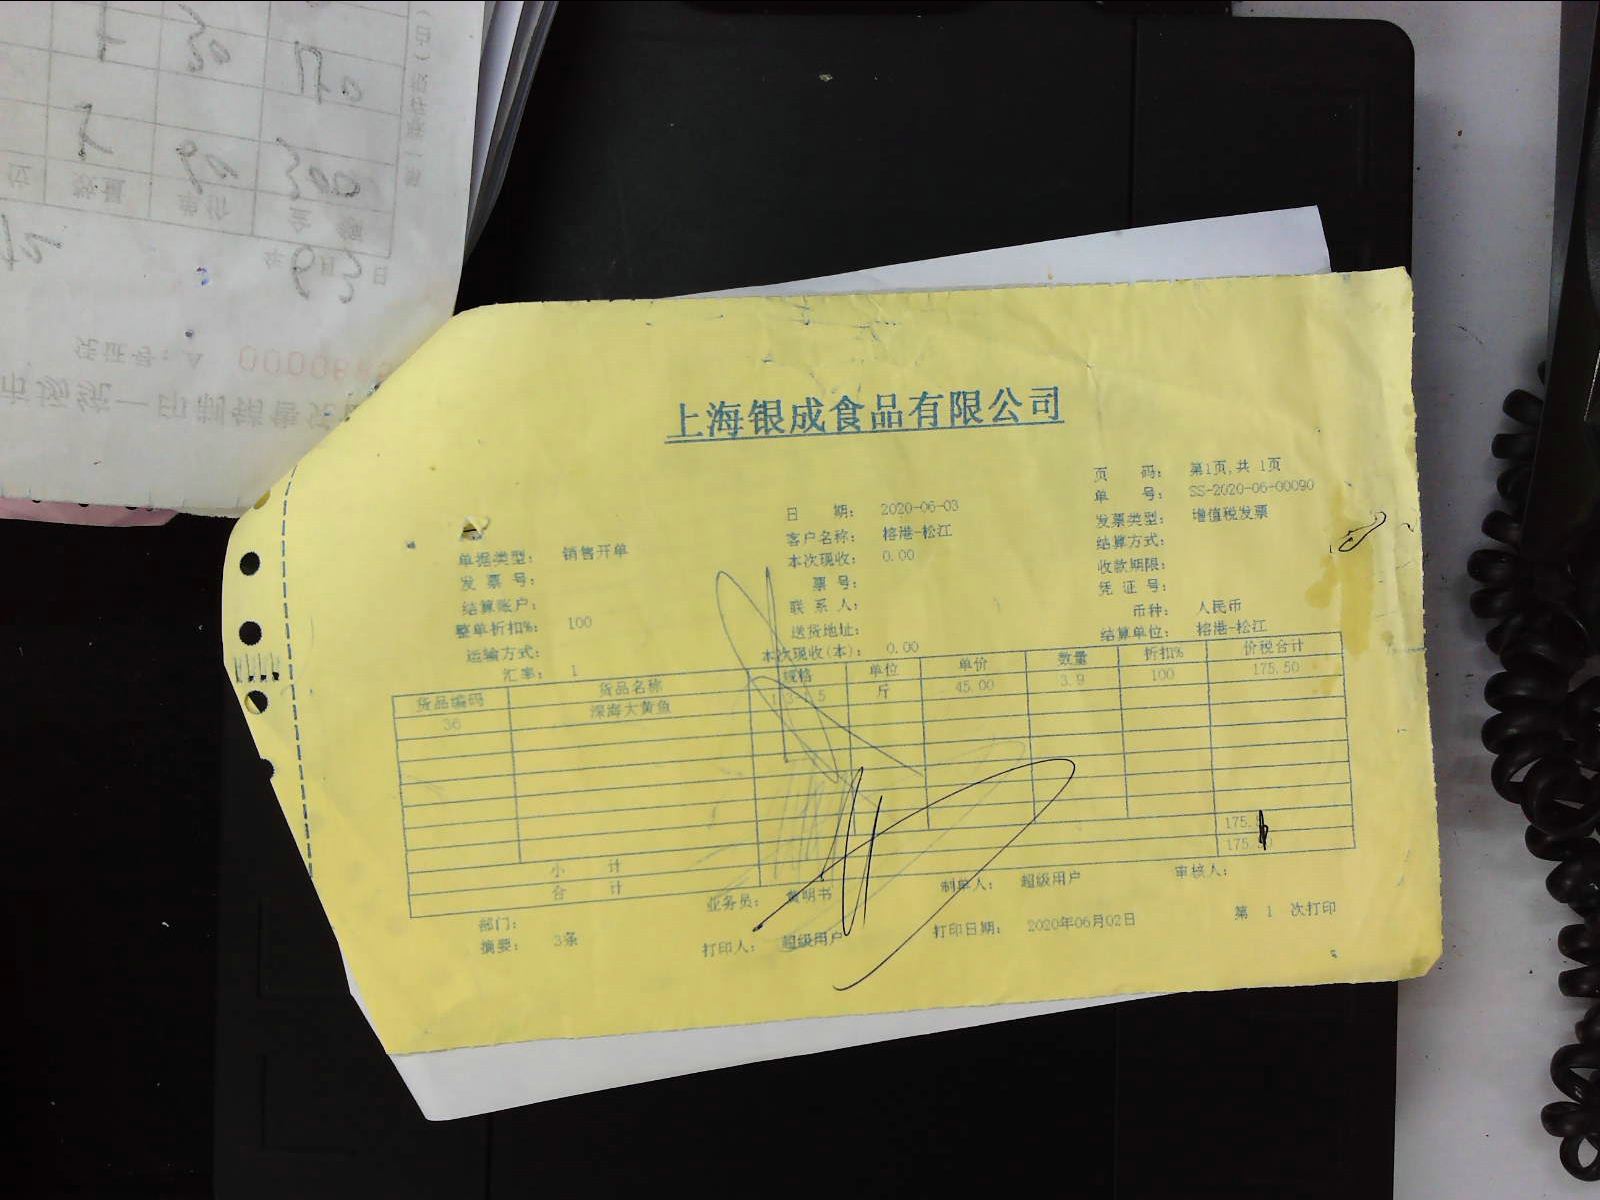 上海银成食品有限公司
页 码： 第1页,共 1页
单 号： SS-2020-06-00090
日 期： 2020-06-03
发票类型： 增值税发票
客户名称： 榕港-松江
结算方式：
单据类型： 销售开单
本次现收： 0.00
收款期限：
发 票 号：
票 号：
凭 证 号：
结算账户：
联 系 人：
币种： 人民币
整单折扣%： 100
送货地址：
结算单位： 榕港-松江
运输方式：
本次现收(本)： 0.00
汇率： 1
货品编码 货品名称 规格 单位 单价 数量 折扣% 价税合计
36 深海大黄鱼 斤 45.00 3.9 100 175.50
小 计 175.
合 计 175.
部门： 业务员： 制单人： 超级用户 审核人：
摘要： 3条 打印人： 超级用户 打印日期： 2020年06月02日 第 1 次打印
凭证号：A
数量 单价 金额
年 6 月 3 日
300